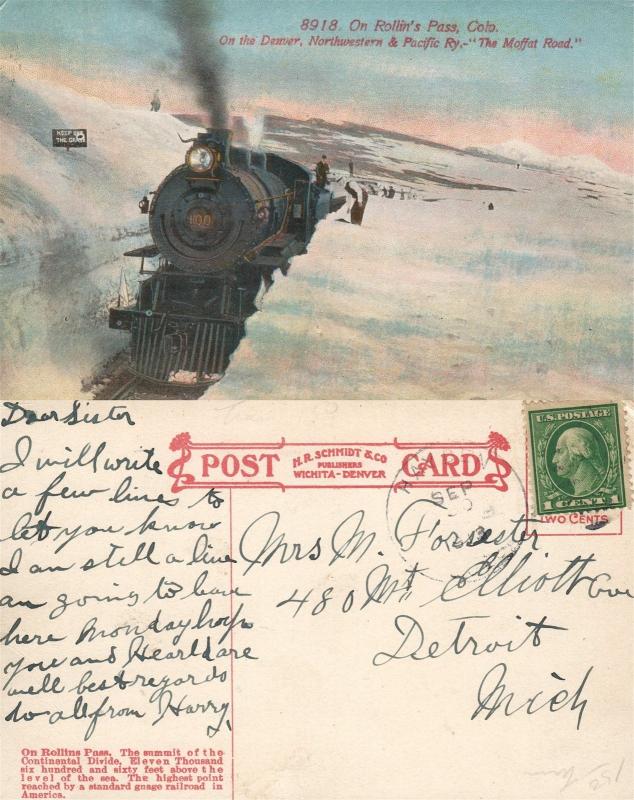 8918. On Rollin's Pass, Colo.
On the Denver, Northwestern & Pacific Ry.-"The Moffat Road."
KEEP OFF
THE GRASS
100
Dear Sister
I will write
a few lines to
let you know
I am still a live
an going to leave
here Monday hope
you and Hearld are
well best regards
to all from Harry
POST CARD
H. R. SCHMIDT & CO
PUBLISHERS
WICHITA-DENVER
SEP
U.S. POSTAGE
1 CENT 1
TWO CENTS
Mrs M. Forsester
480 Mt Elliott Ave
Detroit
Mich
On Rollins Pass. The summit of the
Continental Divide, Eleven Thousand
six hundred and sixty feet above the
level of the sea. The highest point
reached by a standard guage railroad in
America.